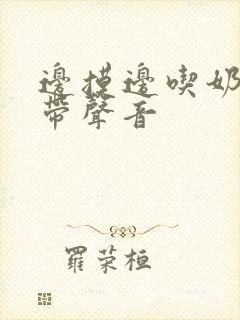 邊摸邊喫奶
帶聲音
羅荣桓